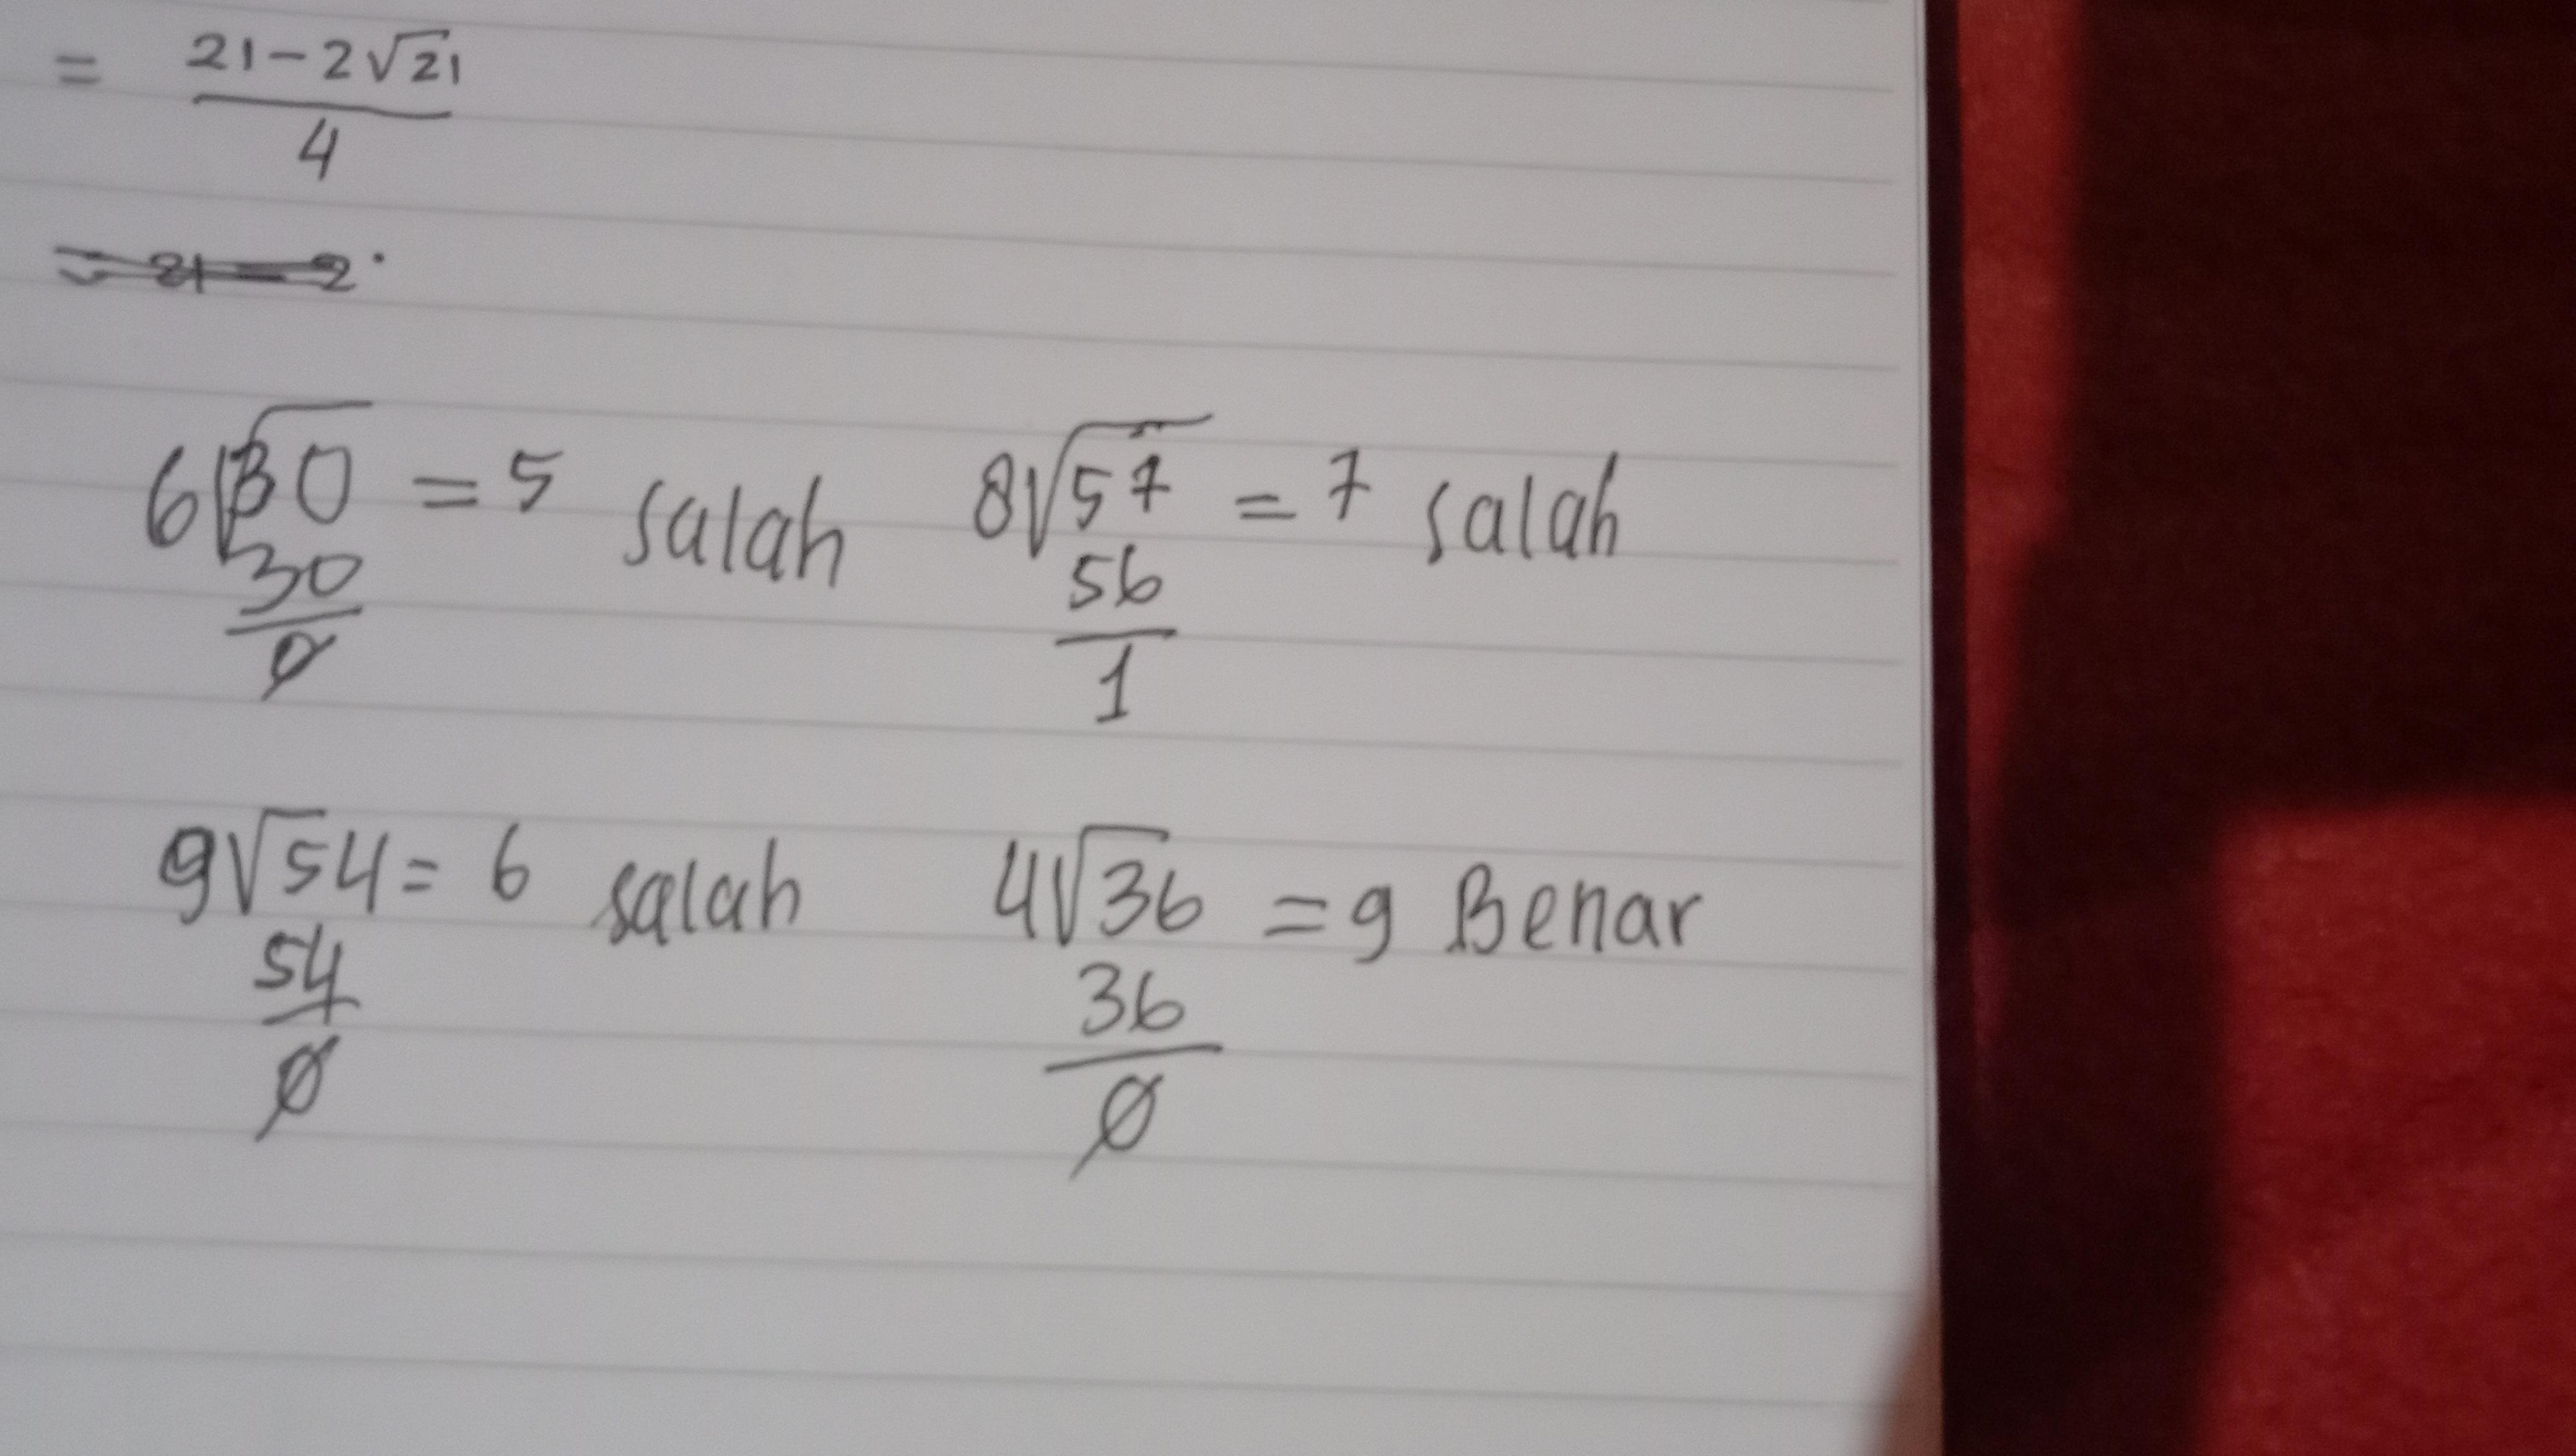 = 21-2√21
4
= 21 - 2
6√30 = 5 salah 8√57 = 7 salah
30 56
0 1
9√54 = 6 salah 4√36 = 9 Benar
54 36
0 0